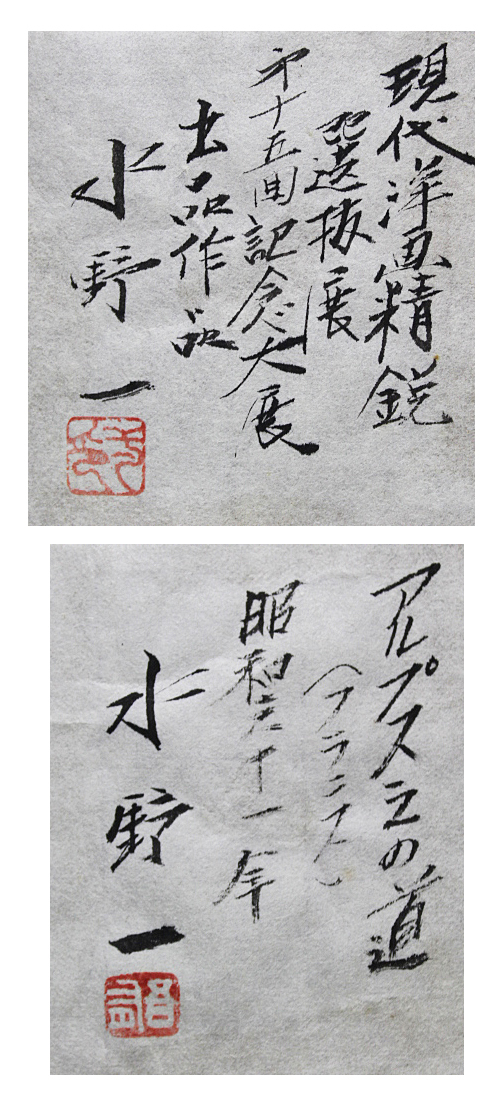 現代洋画精鋭
選抜展
第十五回記念大展
出品作品
水野一
アルプスえの道
(フランス)
昭和六十一年
水野一